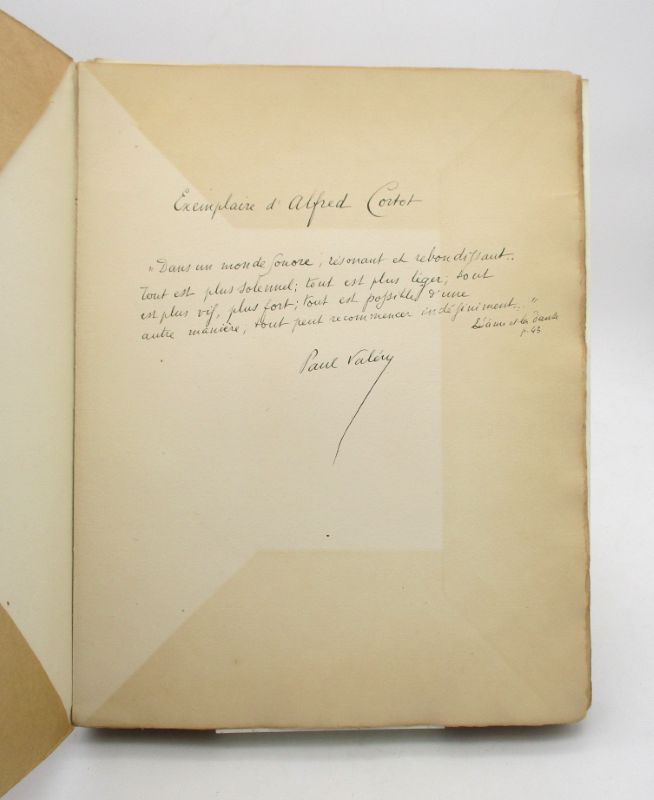 Exemplaire d'Alfred Cortot
"Dans un monde sonore, résonant et rebondissant..
Tout est plus solennel; tout est plus léger; tout
est plus vif, plus fort; tout est possible d'une
autre manière; tout peut recommencer indéfiniment..."
L'âme et la danse
p. 43
Paul Valéry